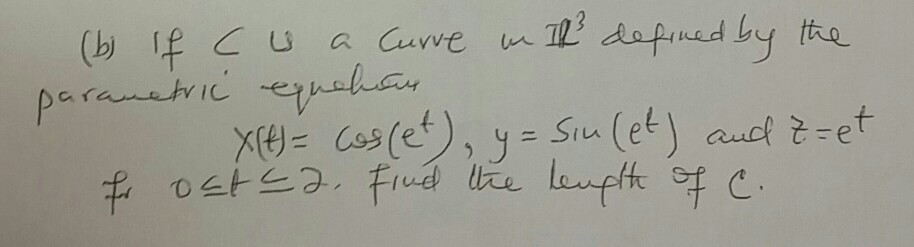 (b) If C is a curve in ℝ³ defined by the
parametric equations
X(t) = Cos(e^t), y = Sin(e^t) and z=e^t
for 0≤t≤2. Find the length of C.